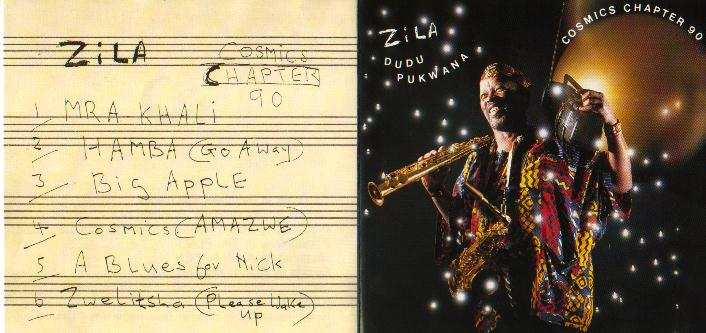 ZiLA COSMICS
CHAPTER
90
1 MRA KHALi
2 HAMBA (Go Away)
3 Big APPLE
4 Cosmics (AMAZWE)
5 A Blues for Nick
6 Zwelitsha (Please Wake
Up)
ZiLA
DUDU
PUKWANA
COSMICS CHAPTER 90